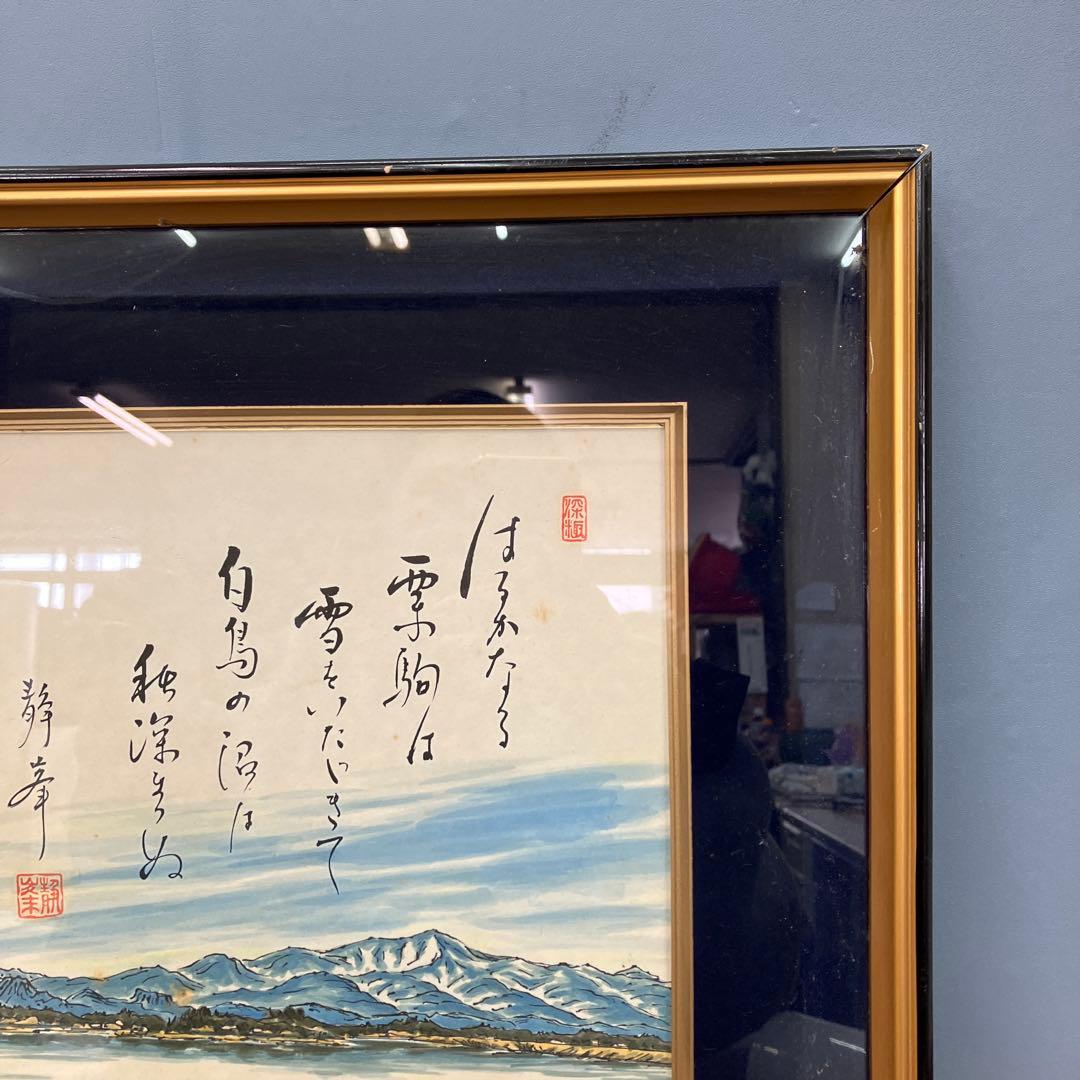 深極
はるかなる
栗駒は
雪をいただきて
白鳥の沼は
秋深まりぬ
静峯
静峯